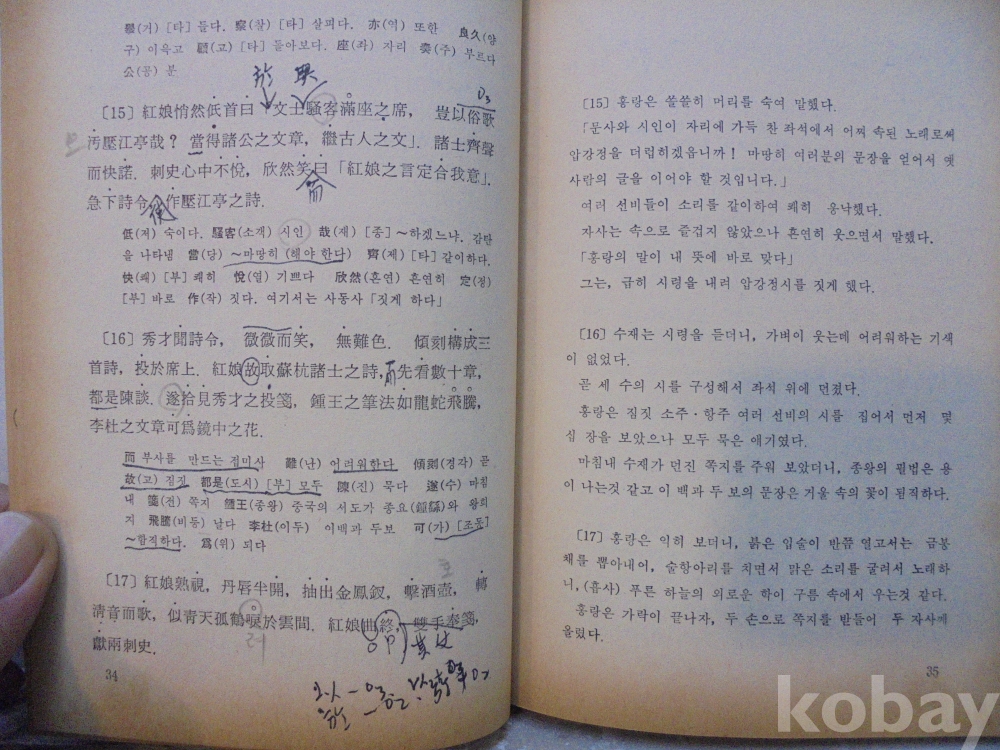 擧(거) [타] 들다. 察(찰) [타] 살피다. 亦(역) 또한 良久(양
구) 이윽고 顧(고) [타] 돌아보다. 座(좌) 자리 奏(주) 부르다
公(공) 분
於 與
[15] 紅娘悄然低首曰 「文士騷客滿座之席, 豈以俗歌
汚壓江亭哉? 當得諸公之文章, 繼古人之文」. 諸士齊聲
而快諾. 刺史心中不悅, 欣然笑曰 「紅娘之言定合我意」.
急下詩令, 作壓江亭之詩.
低(저) 숙이다. 騷客(소객) 시인 哉(재) [종] ~하겠느냐. 감탄
을 나타냄 當(당) ~마땅히 (해야 한다) 齊(제) [타] 같이하다.
快(쾌) [부] 쾌히 悅(열) 기쁘다 欣然(흔연) 흔연히 定(정)
[부] 바로 作(작) 짓다. 여기서는 사동사 「짓게 하다」
[16] 秀才聞詩令, 微微而笑, 無難色. 傾刻構成三
首詩, 投於席上. 紅娘故取蘇杭諸士之詩, 而先看數十章,
都是陳談. 遂拾見秀才之投箋, 鍾王之筆法如龍蛇飛騰,
李杜之文章可爲鏡中之花.
而 부사를 만드는 접미사 難(난) 어려워한다 傾刻(경각) 곧
故(고) 짐짓 都是(도시) [부] 모두 陳(진) 묵다 遂(수) 마침
내 箋(전) 쪽지 鍾王(종왕) 중국의 서도가 종요(鍾繇)와 왕희
지 飛騰(비등) 날다 李杜(이두) 이백과 두보 可(가) [조동]
~함직하다. 爲(위) 되다
[17] 紅娘熟視, 丹唇半開, 抽出金鳳釵, 擊酒壺, 轉
清音而歌, 似靑天孤鶴唳於雲間. 紅娘曲終, 雙手奉箋,
獻兩刺史.
34
[15] 홍랑은 쓸쓸히 머리를 숙여 말했다.
「문사와 시인이 자리에 가득 찬 좌석에서 어찌 속된 노래로써
압강정을 더럽히겠읍니까! 마땅히 여러분의 문장을 얻어서 옛
사람의 글을 이어야 할 것입니다.」
여러 선비들이 소리를 같이하여 쾌히 응낙했다.
자사는 속으로 즐겁지 않았으나 흔연히 웃으면서 말했다.
「홍랑의 말이 내 뜻에 바로 맞다」
그는, 급히 시령을 내려 압강정시를 짓게 했다.
[16] 수재는 시령을 듣더니, 가벼이 웃는데 어려워하는 기색
이 없었다.
곧 세 수의 시를 구성해서 좌석 위에 던졌다.
홍랑은 짐짓 소주·항주 여러 선비의 시를 집어서 먼저 몇
십 장을 보았으나 모두 묵은 얘기였다.
마침내 수재가 던진 쪽지를 주워 보았더니, 종왕의 필법은 용
이 나는것 같고 이 백과 두 보의 문장은 거울 속의 꽃이 됨직하다.
[17] 홍랑은 익히 보더니, 붉은 입술이 반쯤 열고서는 금봉
채를 뽑아내어, 술항아리를 치면서 맑은 소리를 굴려서 노래하
니, (흡사) 푸른 하늘의 외로운 학이 구름 속에서 우는것 같다.
홍랑은 가락이 끝나자, 두 손으로 쪽지를 받들어 두 자사에
올렸다.
35
kobay